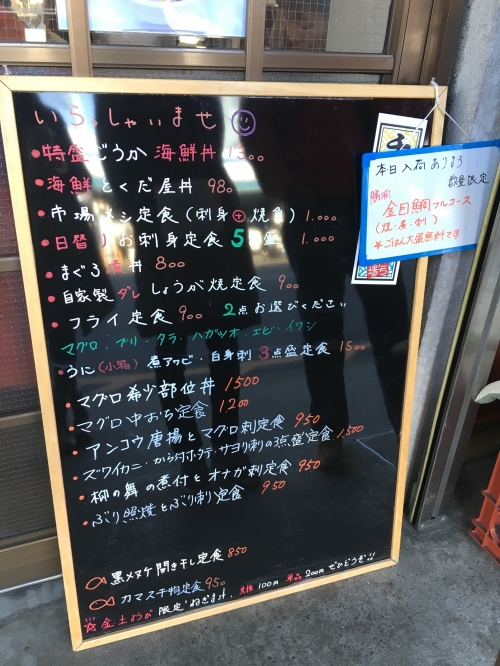 いらっしゃいませ
・特盛ごうか海鮮丼 1300
・海鮮とくだ屋丼 980
・市場メシ定食(刺身+焼魚) 1.000
・日替りお刺身定食5点盛 1.000
・まぐろ煮丼 800
・自家製ダレしょうが焼定食 900
・フライ定食 900 2点お選びください
マグロ・ブリ・タラ・ハガツオ・エビ・イワシ
・うに(小箱)煮アワビ・白身刺3点盛定食 1500
・マグロ希少部位丼 1500
・マグロ中おち定食 1,200
・アンコウ唐揚とマグロ刺定食 950
・ズワイカニ・から付ホタテ・サヨリ刺の3点盛定食 1,500
・柳の舞の煮付とオナガ刺定食 950
・ぶり照焼とぶり刺定食 950
黒メヌケ開き干し定食 850
カマス干物定食 950
☆金・土のみ 限定'ねぎま汁' 交換100円 単品200円でどうぞ!!
本日入荷あります
数量限定
勝浦
金目鯛フルコース
(焼・煮・刺)
★ごはん大盛無料です